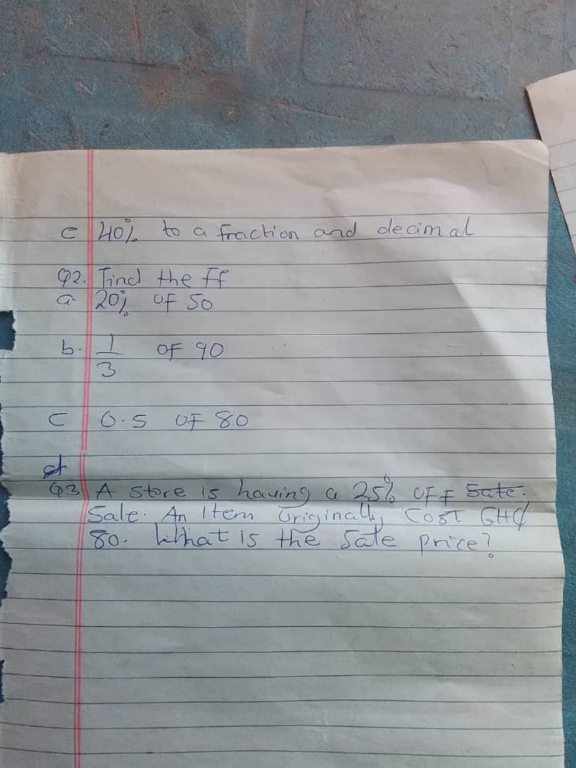 c 40% to a fraction and decimal
Q2. Find the ff
a 20% of 50
b. 1/3 of 90
c 0.5 of 80
Q3 A store is having a 25% off Sale.
Sale. An Item originally Cost GH¢
80. What is the Sale price?